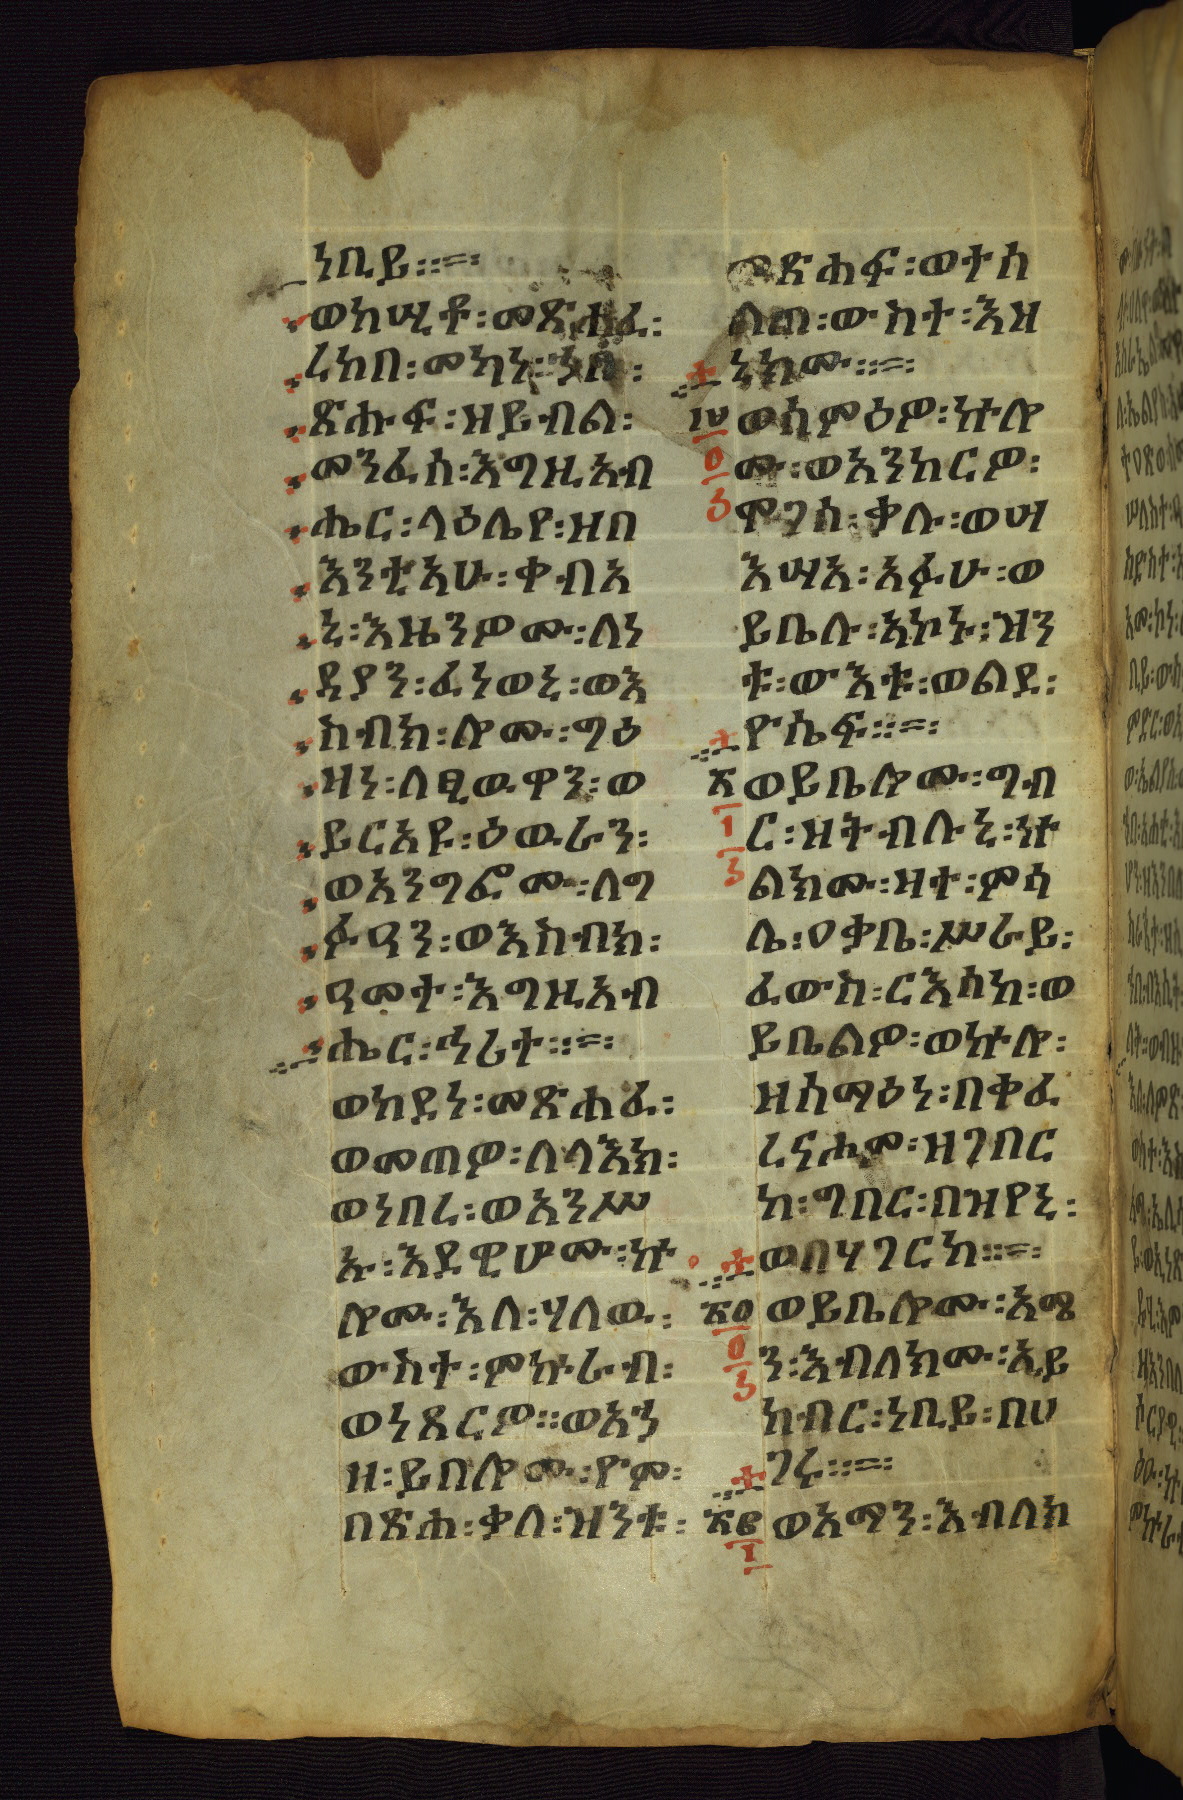 ነቢይ።፡=፡
ወከሢቶ፡መጽሐፈ፡
ረከበ፡መካነ፡ኀበ፡
ጽሑፍ፡ዘይብል፡
መንፈሰ፡እግዚአብ
ሔር፡ላዕሌየ፡ዘበ
እንቲአሁ፡ቀብአ
ኒ፡እዜንዎሙ፡ለነ
ዳያን፡ፈነወኒ፡ወእ
ስብክ፡ሎሙ፡ግዕ
ዛነ፡ለፂዉዋን፡ወ
ይርአዩ፡ዕዉራን፡
ወእንግፎሙ፡ለግ
ፉዓን፡ወእስብክ፡
ዓመተ፡እግዚአብ
ሔር፡ኅሪተ።፡=፡
ወከደነ፡መጽሐፈ፡
ወመጠዎ፡ለላእክ፡
ወነበረ፡ወአንሥ
ኡ፡እደዊሆሙ፡ኵ
ሎሙ፡እለ፡ሃለዉ፡
ውስተ፡ምኵራብ፡
ወነጸርዎ።ወእን
ዘ፡ይበሎሙ፡ዮም፡
በጽሐ፡ቃለ፡ዝንቱ፡
መጽሐፍ፡ወተሰ
ልጠ፡ውስተ፡እዘ
ኒክሙ።፡=፡
፲፱ ወሰምዕዎ፡ኵሎ
ሙ፡ወአንከርዎ፡
ሞገሰ፡ቃሉ፡ወሣ
እሣአ፡አፉሁ፡ወ
ይቤሉ፡አኮኑ፡ዝን
ቱ፡ውእቱ፡ወልደ፡
ዮሴፍ።፡=፡
፳ ወይቤሎሙ፡ግብ
ር፡ዘትብሉኒ፡ኵ
ልክሙ፡ዛተ፡ምሳ
ሌ፡ዐቃቤ፡ሥራይ፡
ፈውስ፡ርእሰከ፡ወ
ይቤልዎ፡ወኵሎ፡
ዘሰማዕነ፡በቅፈ
ረናሖም፡ዘገበር
ከ፡ግበር፡በዝየኒ፡
ወበሃገርከ።፡=፡
፳፩ ወይቤሎሙ፡አማ
ን፡እብለክሙ፡ኢይ
ከብር፡ነቢይ፡በሀ
ገሩ።፡=፡
፳፪ ወአማን፡እብለክ